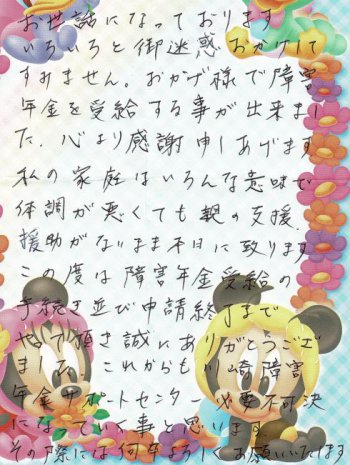 お世話になっております
いろいろと御迷惑おかけして
すみません。おかげ様で障害
年金を受給する事が出来まし
た。心より感謝申しあげます
私の家庭はいろんな意味で
体調が悪くても親の支援、
援助がないまま本日に致ります
この度は障害年金受給の
手続き並び申請終了まで
やって頂き誠にありがとうござい
ました。これからも川崎障害
年金サポートセンター必要不可決
になっていく事と思います
その際には何卒よろしくお願いいたします